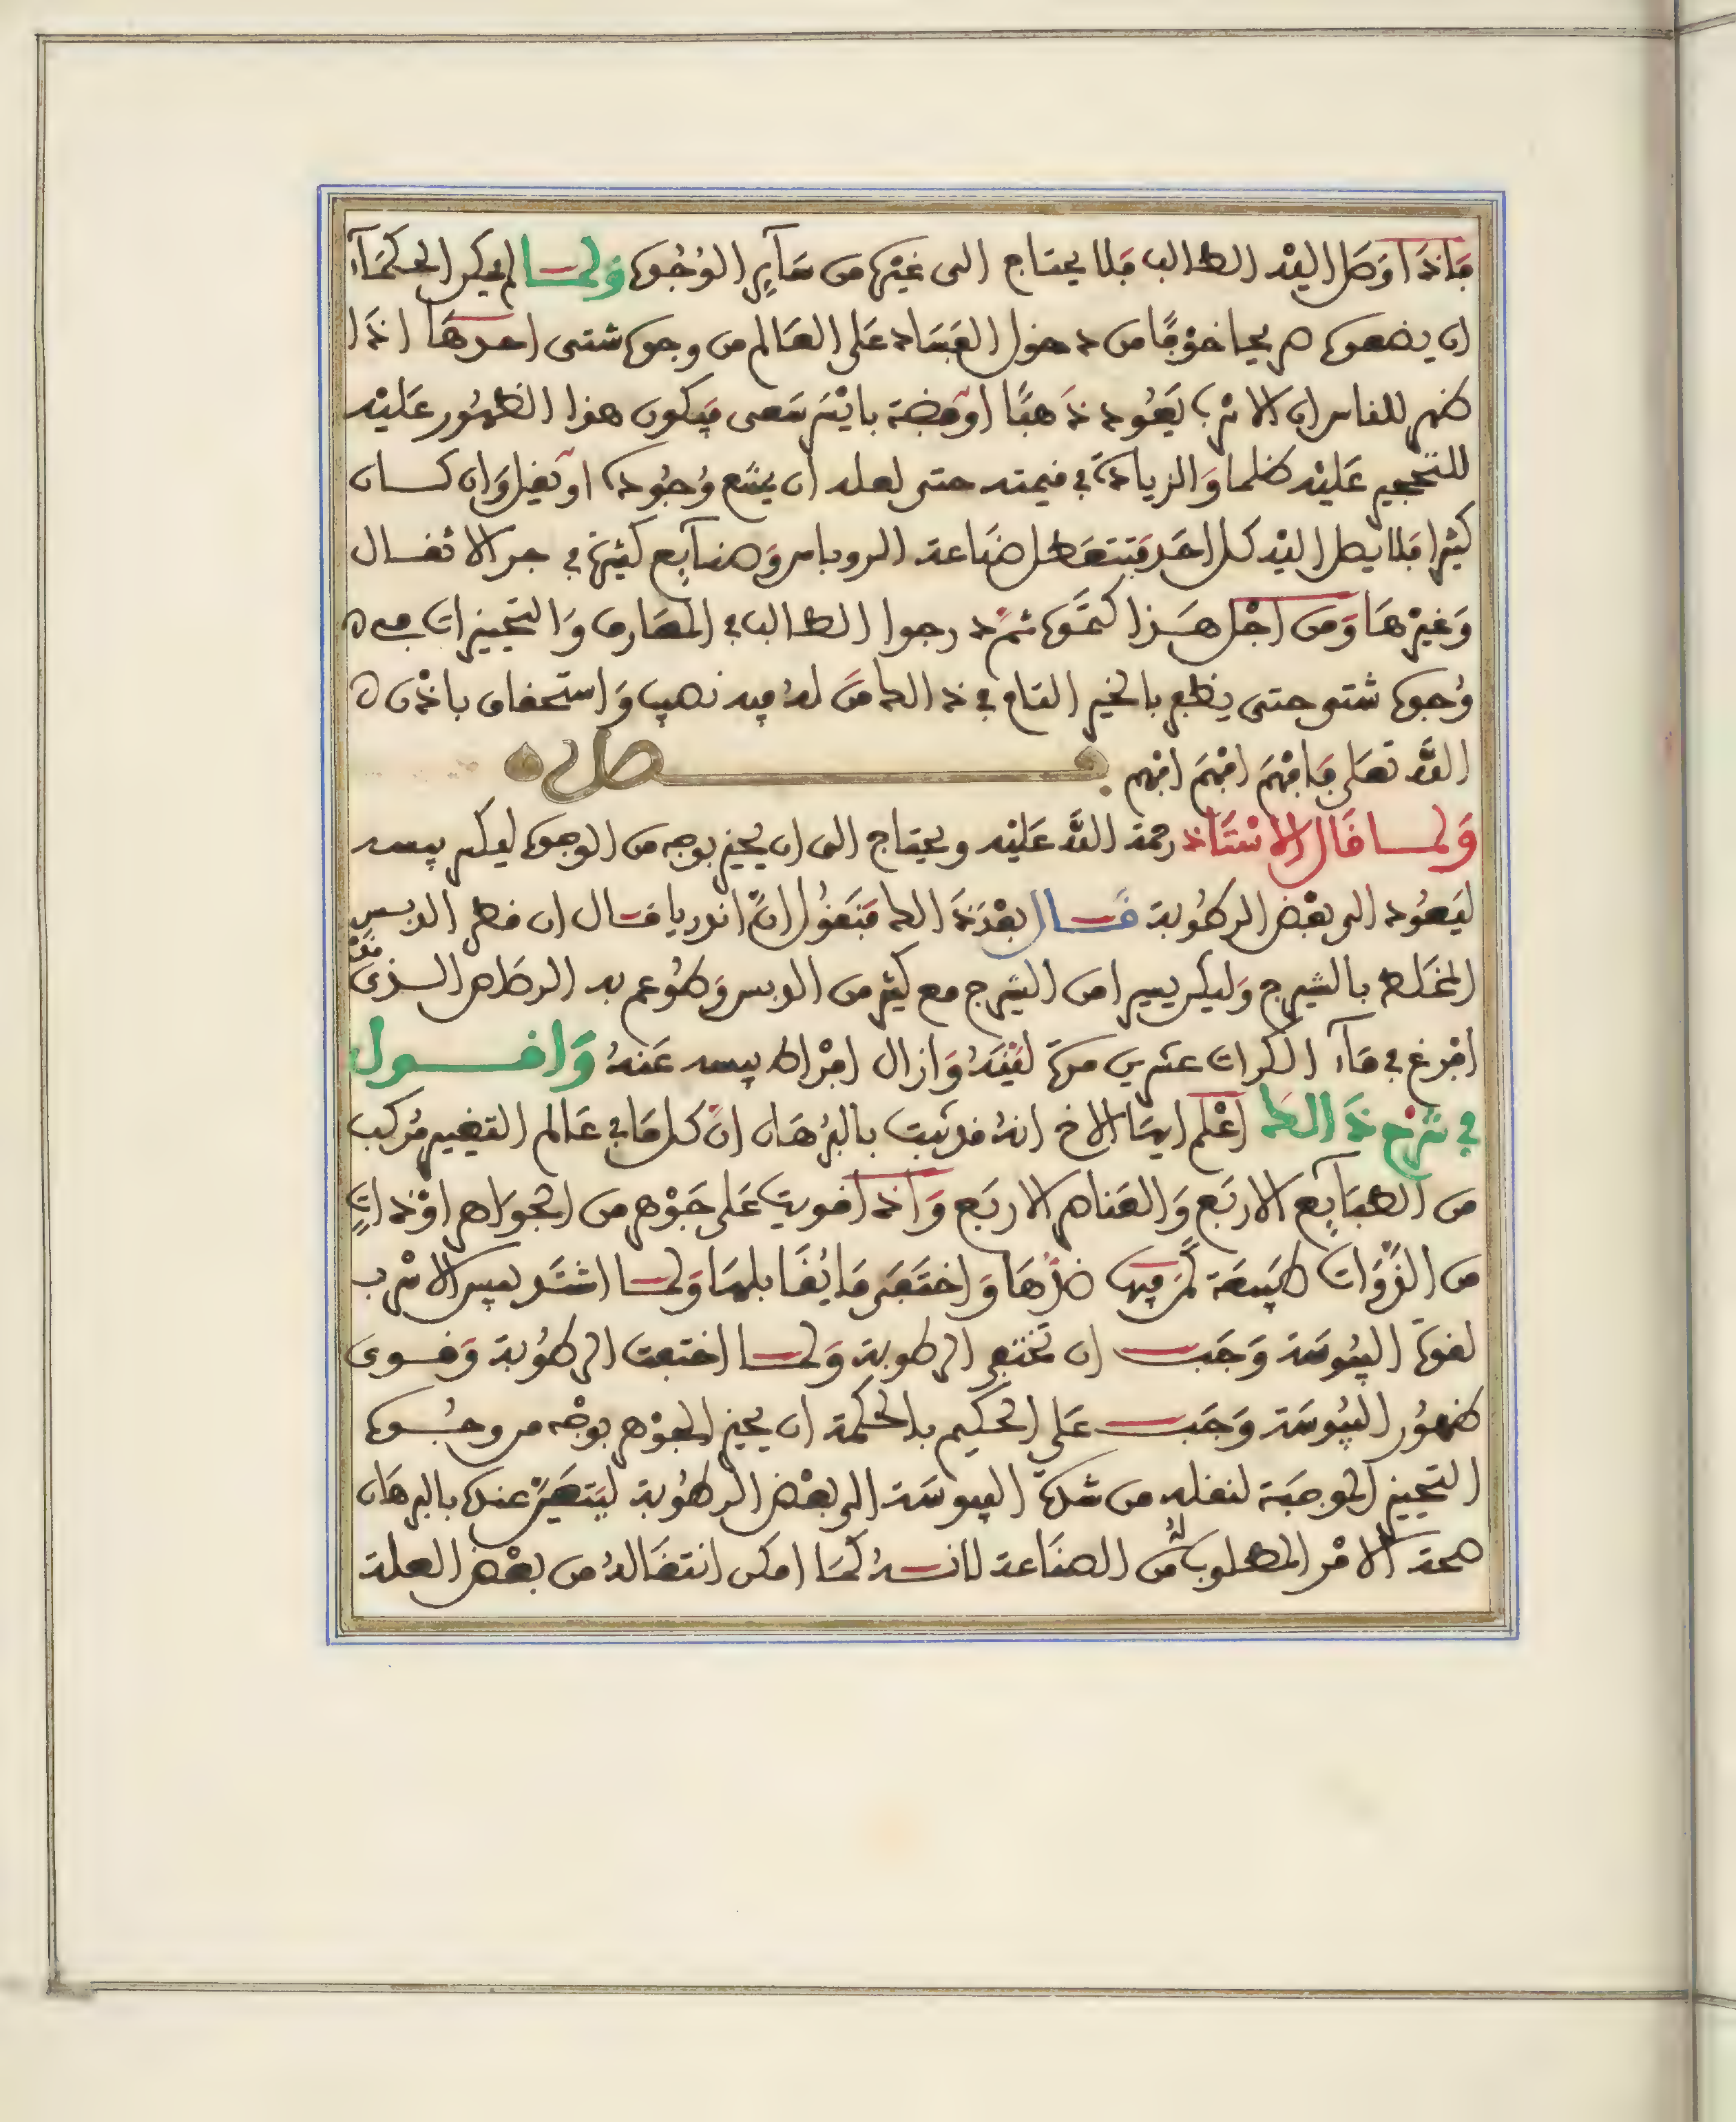 فاذا وصل اليه الطالب فلا يحتاج الى غيره من سآير الوُجُوه ولمــا لم يكن الحكمآء
ان يضعوه صريحا خوفًا من دخول الفساد على العالم من وجوه شتى احدها اذا
ظهر للناس ان الاسْرب يَعُود ذهبًا او فضة بايْسر سَعى فيكون هذا الظهُور عليْه
للتحجير عليْه ظلما وَالزيادة في قيمته حتى لعله ان يمتنع وُجُوده او يقل وَان كــان
كثيرا فلا يصل اليْه كل احَد فتتعَطل صَناعة الروباص وَصنآيع كثيرة في جر الاثقــال
وَغيْرهَا وَمن اجْل هـذا كتموه ثم درجوا الطالب في المعَارف وَالتجيزات من
وُجوه شتى حتى يظفر بالخير التام في ذالك من لهُ فيه نصيب وَاستحقاق باذْن
اللّه تعَلى فافهَم افهَم افهم
وَلمــا قال الاسْتَاذ رحمة اللّه عَليْه ويحتاج الى ان يُجيز بوجه من الوجوه ليكسر يبسه
ليَعُود الى بعْض الرطُوبة قـال بعْد ذالك فنقُول انّ اندريا قــال ان قطر الدبس
المخلط بالشيرج وَليكن يسيرا من الشيرج مع كثير من الدبس وَطُوعم به الرصَاص الــذى قدْ
افرغ في مَآء الكراث عشرين مرة لَيّنهُ وَازال افرَاط يبسه عَنهُ وَاقــول
في شرْح ذَالك اعْلم ايهَا الاخ انهُ قد ثبت بالبُرهَان انّ كل مَا في عَالم التغيير مُركب
من الطبَآيع الاربَع وَالعَناصر الاربَع وَاذا قويت عَلى جَوْهر من الجوَاهر اوْ ذات
من الذّوَات طبيعَة كمَن فيها ضدّهَا وَاختفَى مَا يُقَابلهَا وَلمــا اشتَد يبس الاسْرب
لقوة اليبُوسَة وَجَب ان تختفى الرطوبة وَلمــا اختفت الرطُوبة وَقــوى
ظهُور اليبُوسَة وَجَب عَلى الحكيم بالحكمة ان يجيز الجوْهر بوجْه من وجُــوه
التجيز الموجبَة لنقله من شدة اليبوسَة الى بعْض الرطُوبة ليَتعَيّن عنده بالبرهَان
صحة الامْر المطلوب لهُ من الصنَاعة لانــهُ كمَا امكن انتقَالهُ من بعْض العلة